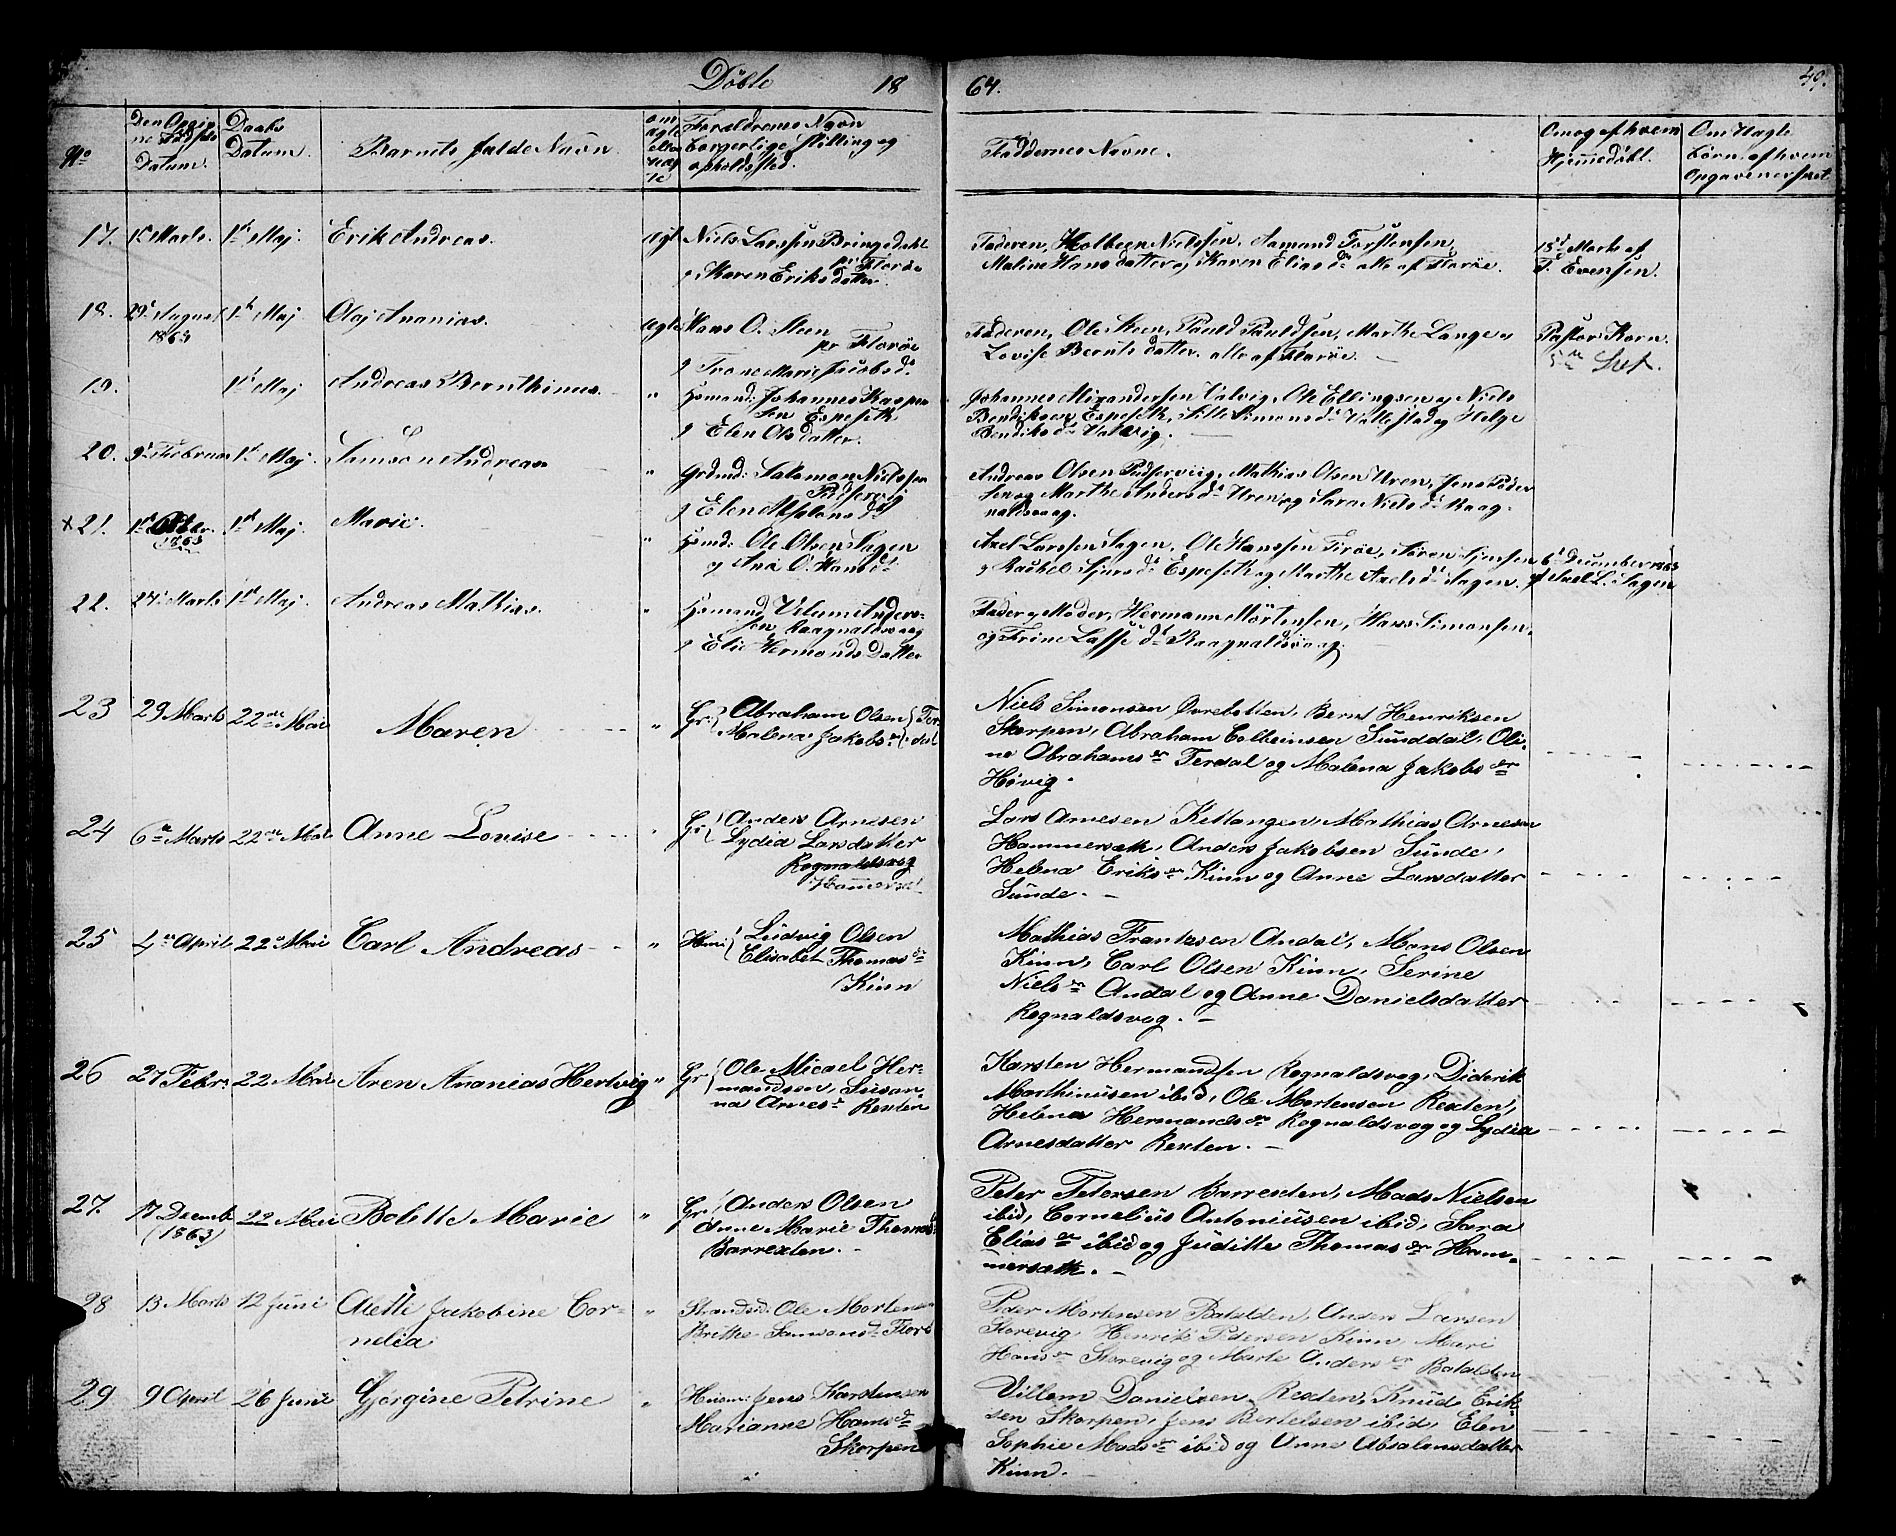 Döbte 18 64. 49.
No
Den Opgiv
ne Födsels
Datum.
Daabs
Datum.
Barnets fulde Navn.
om
ægte
eller
uæg
te
Forældrenes Navn
borgerlige Stilling og
opholdssted.
Faddernes Navne.
Om og af hvem
Hjemmedöbt.
Om Uægte
Börn. af hvem
Opgaven er skeet
17. 1ste Marts. 1ste Maj. Erik Andreas. ægte Niels Larssen Bringedahl
pr Florøe
& Karen Eriksdatter.
Faderen, Kolbeen Nielssen, Aamund Torstensen,
Maline Hansdatter og Karen Eliasdr alle af Florøe.
18de Marts af
T. Evensen.
18. 29. August
1863
1ste Maj Olaj Ananias. ægte Hans O. Steen
pr Florøe
& Trone Marie Jacobsdr.
Faderen, Ole Steen, Pauld Pauldsen, Marthe Lange &
Lovise Berntsdatter. alle af Florøe.
Pastor Korn.
19. 1ste Maj Andreas Bernthinus. " Huusmand: Johannes Kasper
sen Espeseth
& Elen Olsdatter.
Johannes Mixandersen Valvig, Ole Ellingsen & Niels
Bendiksen Espeseth, Sille Simonsdr Vallestad og Helge
Bendiksdr Valvig.
20. 9de Februar 1ste Maj. Samson Andreas " Grdmd: Salomon Nielssen
& Elen Absalonsdr
Andreas Olsen, Mathias Olsen Uren, Jens Peder
sen og Marthe Andersdr Uren og Sara Nielsdr Raag-
naldsvaag.
x 21. 1863 1ste Maj Marie. " Huusmd: Ole Olsen Sagen
og Ana O. Hansdr
Axel Larssen Sagen, Ole Hanssen Tiröe, Sören Sjursen
& Rachel Sjursdr Espeseth og Marthe Axelsdr Sagen.
6te December 1863
af Axel L. Sagen
22. 27. Marts 1ste Maj. Andreas Mathias. " Huusmand Velum Anders-
sen Raagnaldsvaag
& Elie Hermonds Datter
Fader & Moder, Hermann Mörtensen, Hans Simonsen,
og Trine Lassedr Raagnaldsvaag.
23 29 Marts 22de Mai Maren " Gr: Abraham Olsen
Malena Jakobsdr Ter-
dal
Niels Simonsen Övrebotten, Bernt Henriksen
Skorpen, Abraham Colbeinsen Sunddal, Oli-
ne Abrahamsdr Terdal og Malena Jakobsdr
Hövig.
24 6te Marts 22de Mai Anne Lovise " Gr Anders Arnesen
Lydia Larsdatter
Rognaldsvog
Hammerset
Lars Arnesen Kittangen, Mathias Arnesen
Hammersæth, Anders Jakobsen Sunde,
Helena Eriksdr Kinn og Anne Larsdatter
Sunde.
25 4de April 22de Mai Carl Andreas " Huus Ludvig Olsen
Elisabet Thomasdr
Kinn
Mathias Frantzsen Andal, Mons Olsen
Kinn, Carl Olsen Kinn, Serine
Nielsdr Andal og Anne Danielsdatter
Rognaldsvog.
26 27 Febr. 22 Mai Aren Ananias Hertvig " Gr Ole Micael Her-
mandsen, Susan-
na Arnesdr Rexten
Karsten Hermandsen Rognaldsvog, Diderik
Morthinusen ibid, Ole Mortensen Rexten,
Helena Hermandsdr Rognaldsvog og Lydia
Arnesdatter Rexten.
27. 17 Decemb
(1863)
22 Mai Bolette Marie " Gr Anders Olsen
Anne Marie Thomasdr
Barrexten.
Peter Petersen Barrexten, Mads Nielsen
ibid, Cornelius Antoniusen ibid, Sara
Eliasdr ibid og Juditte Thomasdr Ham-
mersæth.
28 13 Marts 12 Juni Alette Jakobine Cor-
nelia
" Strands: Ole Mortensen
Brithe Samsonsdr Florö
Peder Mortensen Batalden, Anders Larsen
Storevig, Henrik Pedersen Kinn, Mari
Hansdr Storevig og Marte Andersdr Batalden
29 9 April 26 Juni Gjørgine Petrine " Huusm: Jens Karstensen
Marianne Hansdr
Skorpen
Villem Danielsen Rexten, Knud Erik-
sen Skorpen, Jens Bertelsen ibid, Elen
Sophie Madsdr ibid og Anne Absalonsdatter
Kinn.